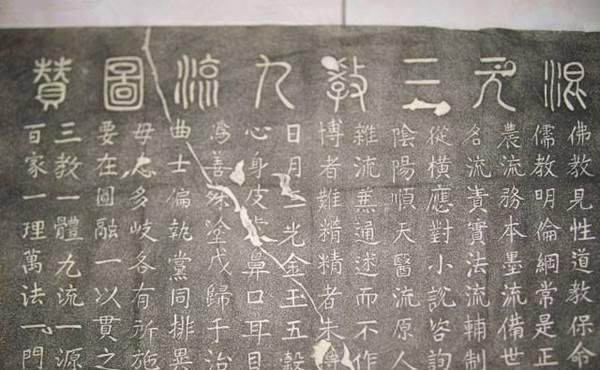 混元三教九流圖贊
佛教見性道教保命
儒教明倫綱常是正
農流務本墨流備世
名流責實法流輔制
從橫應對小說咨詢
陰陽順天醫流原人
雜流兼通述而不作
博者難精精者未博
日月三光金玉五穀
心身皮鼻口耳目
爲善殊塗咸歸于治
曲士偏執黨同排異
毋患多岐各有所施
要在圓融一以貫之
三教一體九流一源
百家一理萬法一門